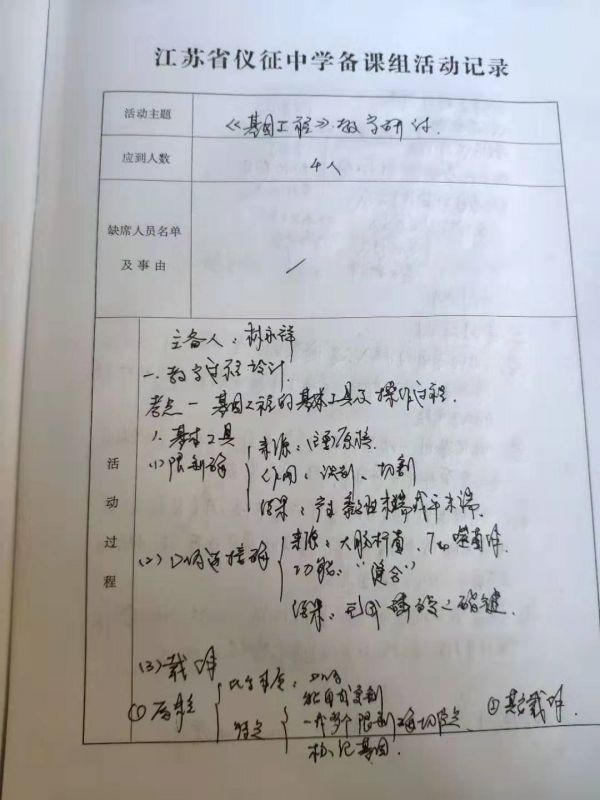 江苏省仪征中学备课组活动记录
活动主题
《基因工程》教学研讨.
应到人数
4人
缺席人员名单
及事由
/
活动过程
主备人:
一、教学过程设计.
考点一 基因工程的基本工具及操作过程.
1.基本工具
(1)限制酶
来源:主要原核
作用:识别、切割
结果:产生黏性末端或平末端.
(2)DNA连接酶
来源:大肠杆菌、T4噬菌体.
功能:“缝合”
结果:形成磷酸二酯键.
(3)载体
①质粒
化学本质:DNA
特点
能自我复制
一个多个限制酶切位点
标记基因.
②其它载体.